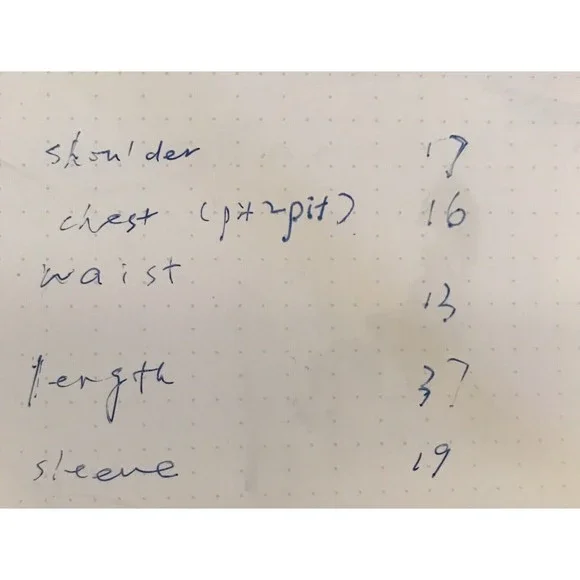 shoulder 17
chest (pit2pit) 16
waist 13
length 37
sleeve 19